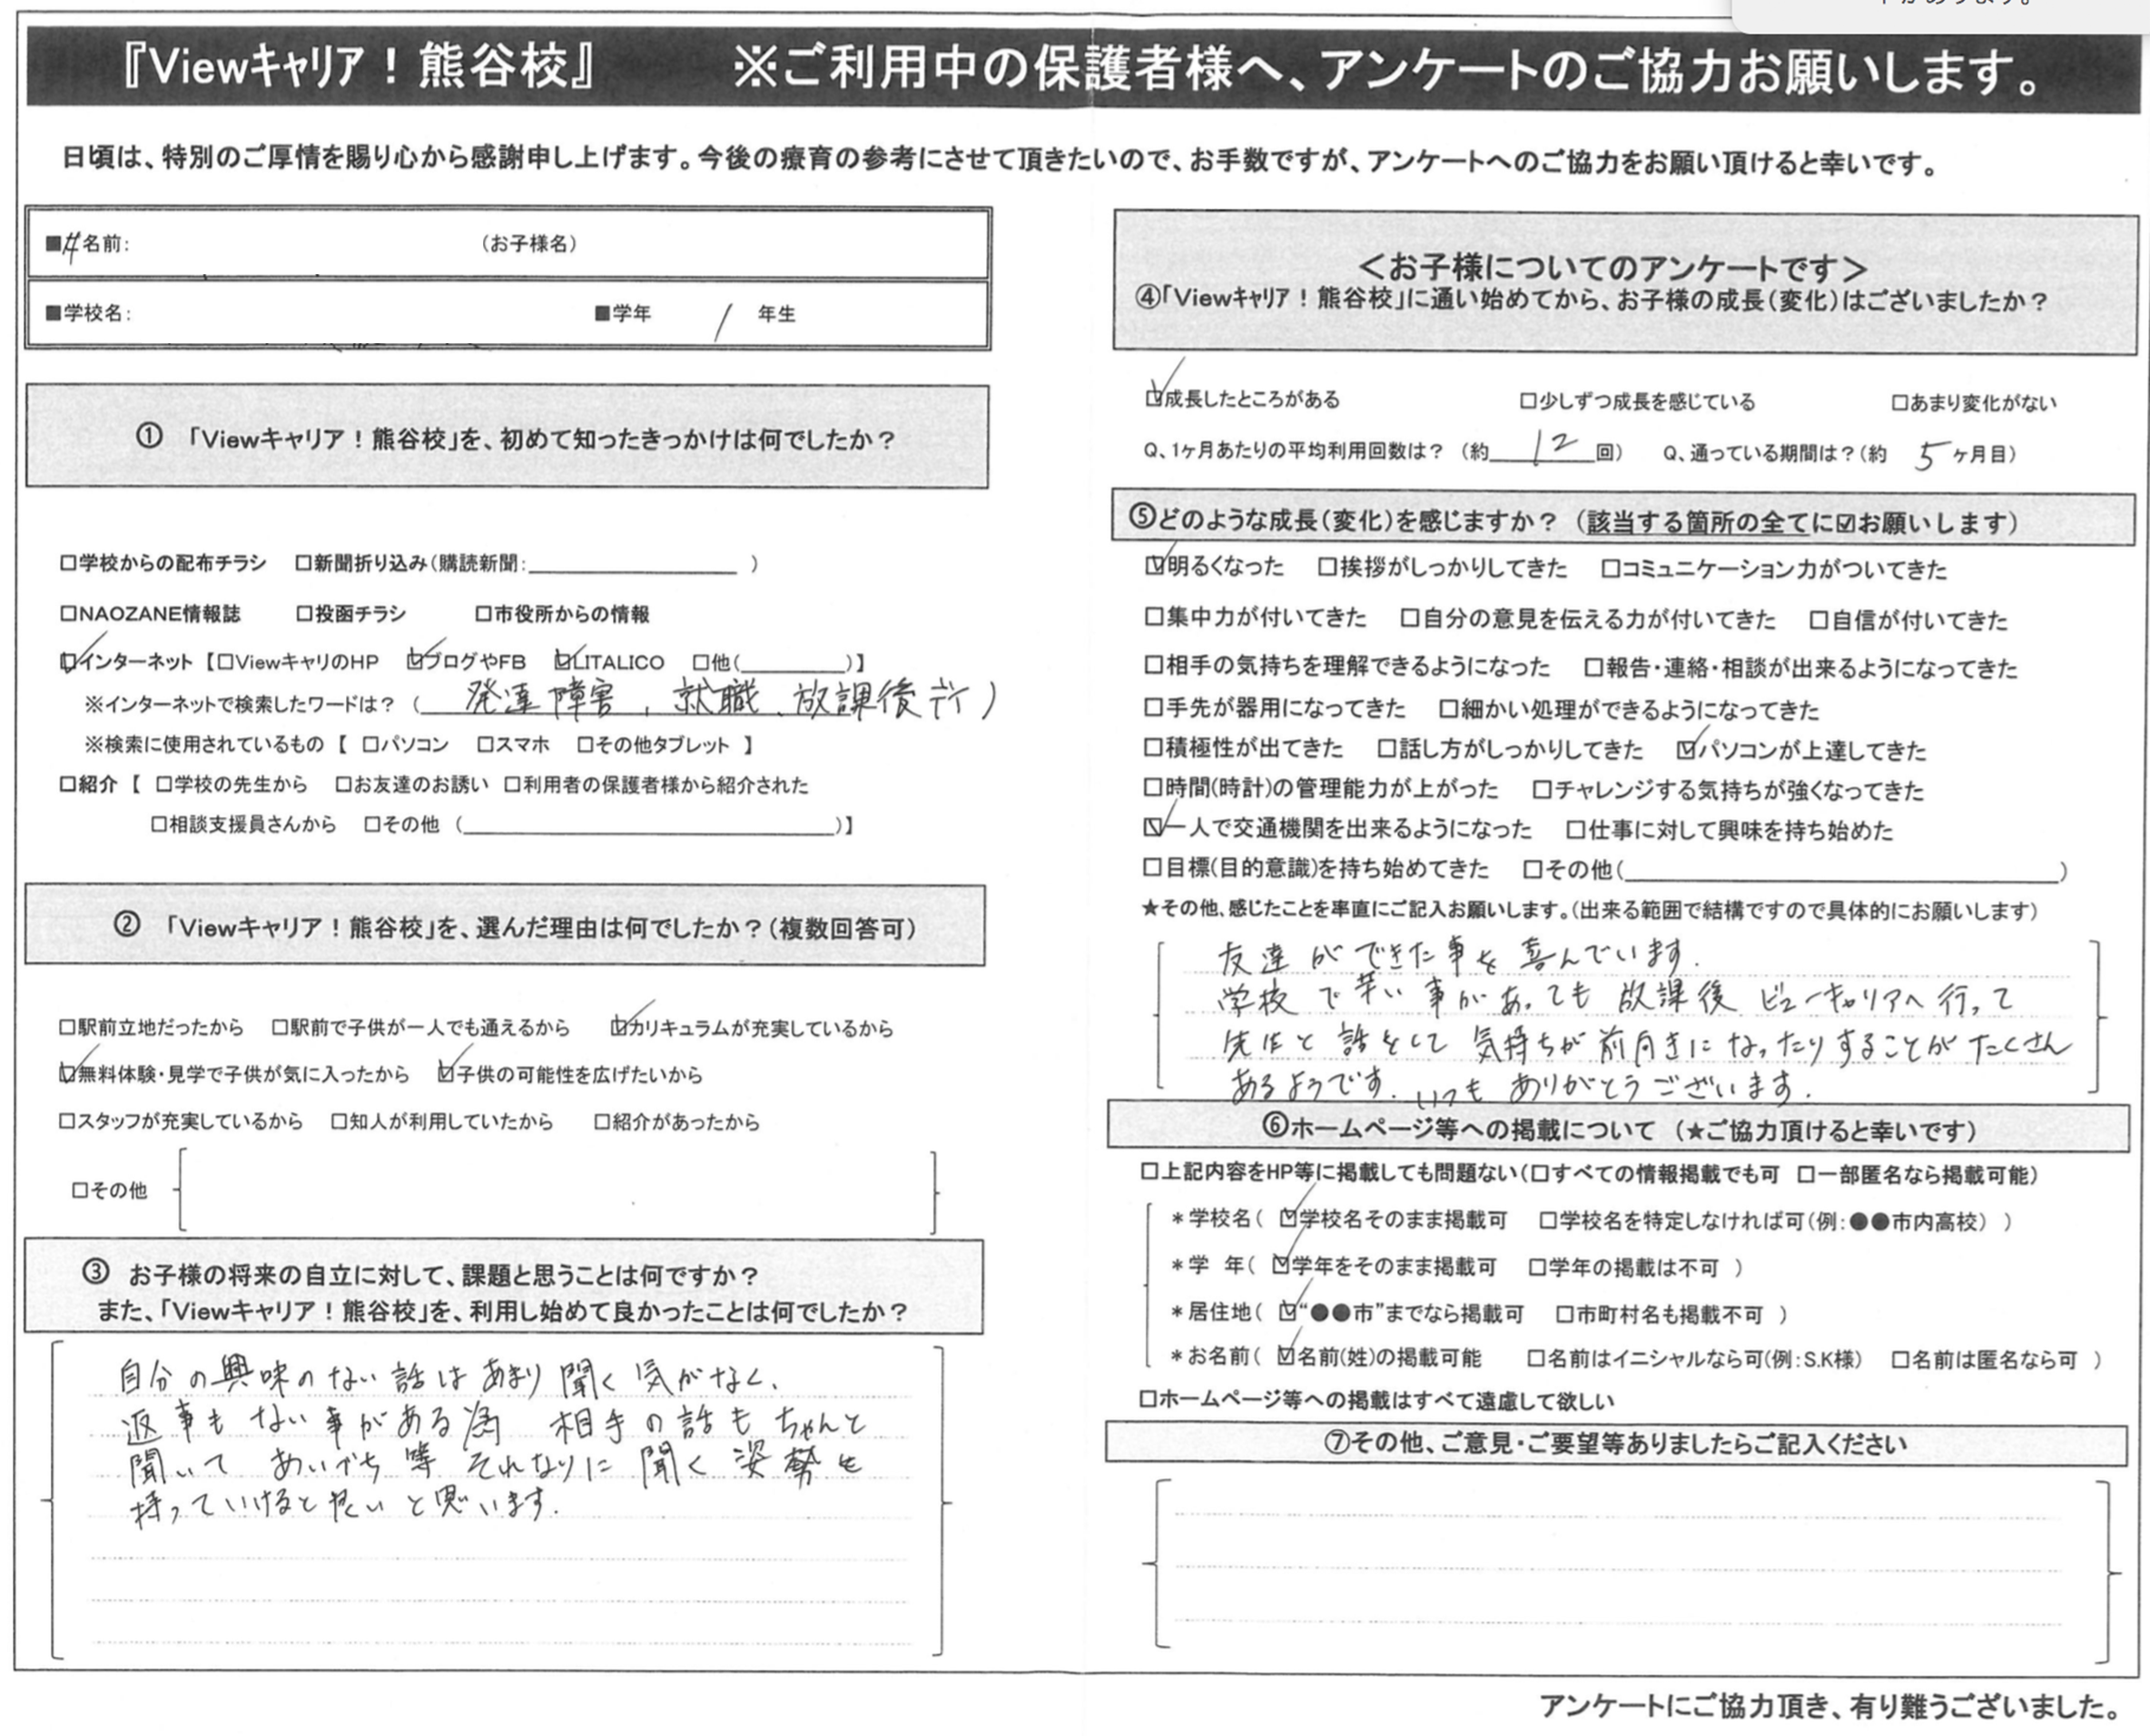 『Viewキャリア！熊谷校』　※ご利用中の保護者様へ、アンケートのご協力お願いします。
日頃は、特別のご厚情を賜り心から感謝申し上げます。今後の療育の参考にさせて頂きたいので、お手数ですが、アンケートへのご協力をお願い頂けると幸いです。
■名前:　(お子様名)
■学校名:　■学年　1　年生
①　「Viewキャリア！熊谷校」を、初めて知ったきっかけは何でしたか？
□学校からの配布チラシ　□新聞折り込み(購読新聞:　)
□NAOZANE情報誌　□投函チラシ　□市役所からの情報
☑インターネット【□ViewキャリのHP　☑ブログやFB　☑LITALICO　□他(　)】
※インターネットで検索したワードは？（発達障害、就職、放課後デイ）
※検索に使用されているもの【 □パソコン　□スマホ　□その他タブレット 】
□紹介【 □学校の先生から　□お友達のお誘い　□利用者の保護者様から紹介された
□相談支援員さんから　□その他（　）】
②　「Viewキャリア！熊谷校」を、選んだ理由は何でしたか？(複数回答可)
□駅前立地だったから　□駅前で子供が一人でも通えるから　☑カリキュラムが充実しているから
☑無料体験・見学で子供が気に入ったから　☑子供の可能性を広げたいから
□スタッフが充実しているから　□知人が利用していたから　□紹介があったから
□その他
③　お子様の将来の自立に対して、課題と思うことは何ですか？
また、「Viewキャリア！熊谷校」を、利用し始めて良かったことは何でしたか？
自分の興味のない話はあまり聞く気がなく、
返事もない事がある為　相手の話もちゃんと
聞いて　あいづち等　それなりに聞く姿勢を
持っていけると良いと思います.
＜お子様についてのアンケートです＞
④「Viewキャリア！熊谷校」に通い始めてから、お子様の成長(変化)はございましたか？
☑成長したところがある　□少しずつ成長を感じている　□あまり変化がない
Q、1ヶ月あたりの平均利用回数は？（約12回）　Q、通っている期間は？(約　5ヶ月目)
⑤どのような成長(変化)を感じますか？（該当する箇所の全てに☑お願いします）
☑明るくなった　□挨拶がしっかりしてきた　□コミュニケーション力がついてきた
□集中力が付いてきた　□自分の意見を伝える力が付いてきた　□自信が付いてきた
□相手の気持ちを理解できるようになった　□報告・連絡・相談が出来るようになってきた
□手先が器用になってきた　□細かい処理ができるようになってきた
□積極性が出てきた　□話し方がしっかりしてきた　☑パソコンが上達してきた
□時間(時計)の管理能力が上がった　□チャレンジする気持ちが強くなってきた
☑一人で交通機関を出来るようになった　□仕事に対して興味を持ち始めた
□目標(目的意識)を持ち始めてきた　□その他(　)
★その他、感じたことを率直にご記入お願いします。(出来る範囲で結構ですので具体的にお願いします)
友達ができた事を喜んでいます.
学校で辛い事があっても放課後ビューキャリアへ行って
先生と話をして気持ちが前向きになったりすることがたくさん
あるようです. いつもありがとうございます.
⑥ホームページ等への掲載について（★ご協力頂けると幸いです）
□上記内容をHP等に掲載しても問題ない(□すべての情報掲載でも可　□一部匿名なら掲載可能)
＊学校名（ ☑学校名そのまま掲載可　□学校名を特定しなければ可(例:●●市内高校) ）
＊学　年（ ☑学年をそのまま掲載可　□学年の掲載は不可 ）
＊居住地（ ☑“●●市”までなら掲載可　□市町村名も掲載不可 ）
＊お名前（ ☑名前(姓)の掲載可能　□名前はイニシャルなら可(例:S.K様)　□名前は匿名なら可 ）
□ホームページ等への掲載はすべて遠慮して欲しい
⑦その他、ご意見・ご要望等ありましたらご記入ください
アンケートにご協力頂き、有り難うございました。